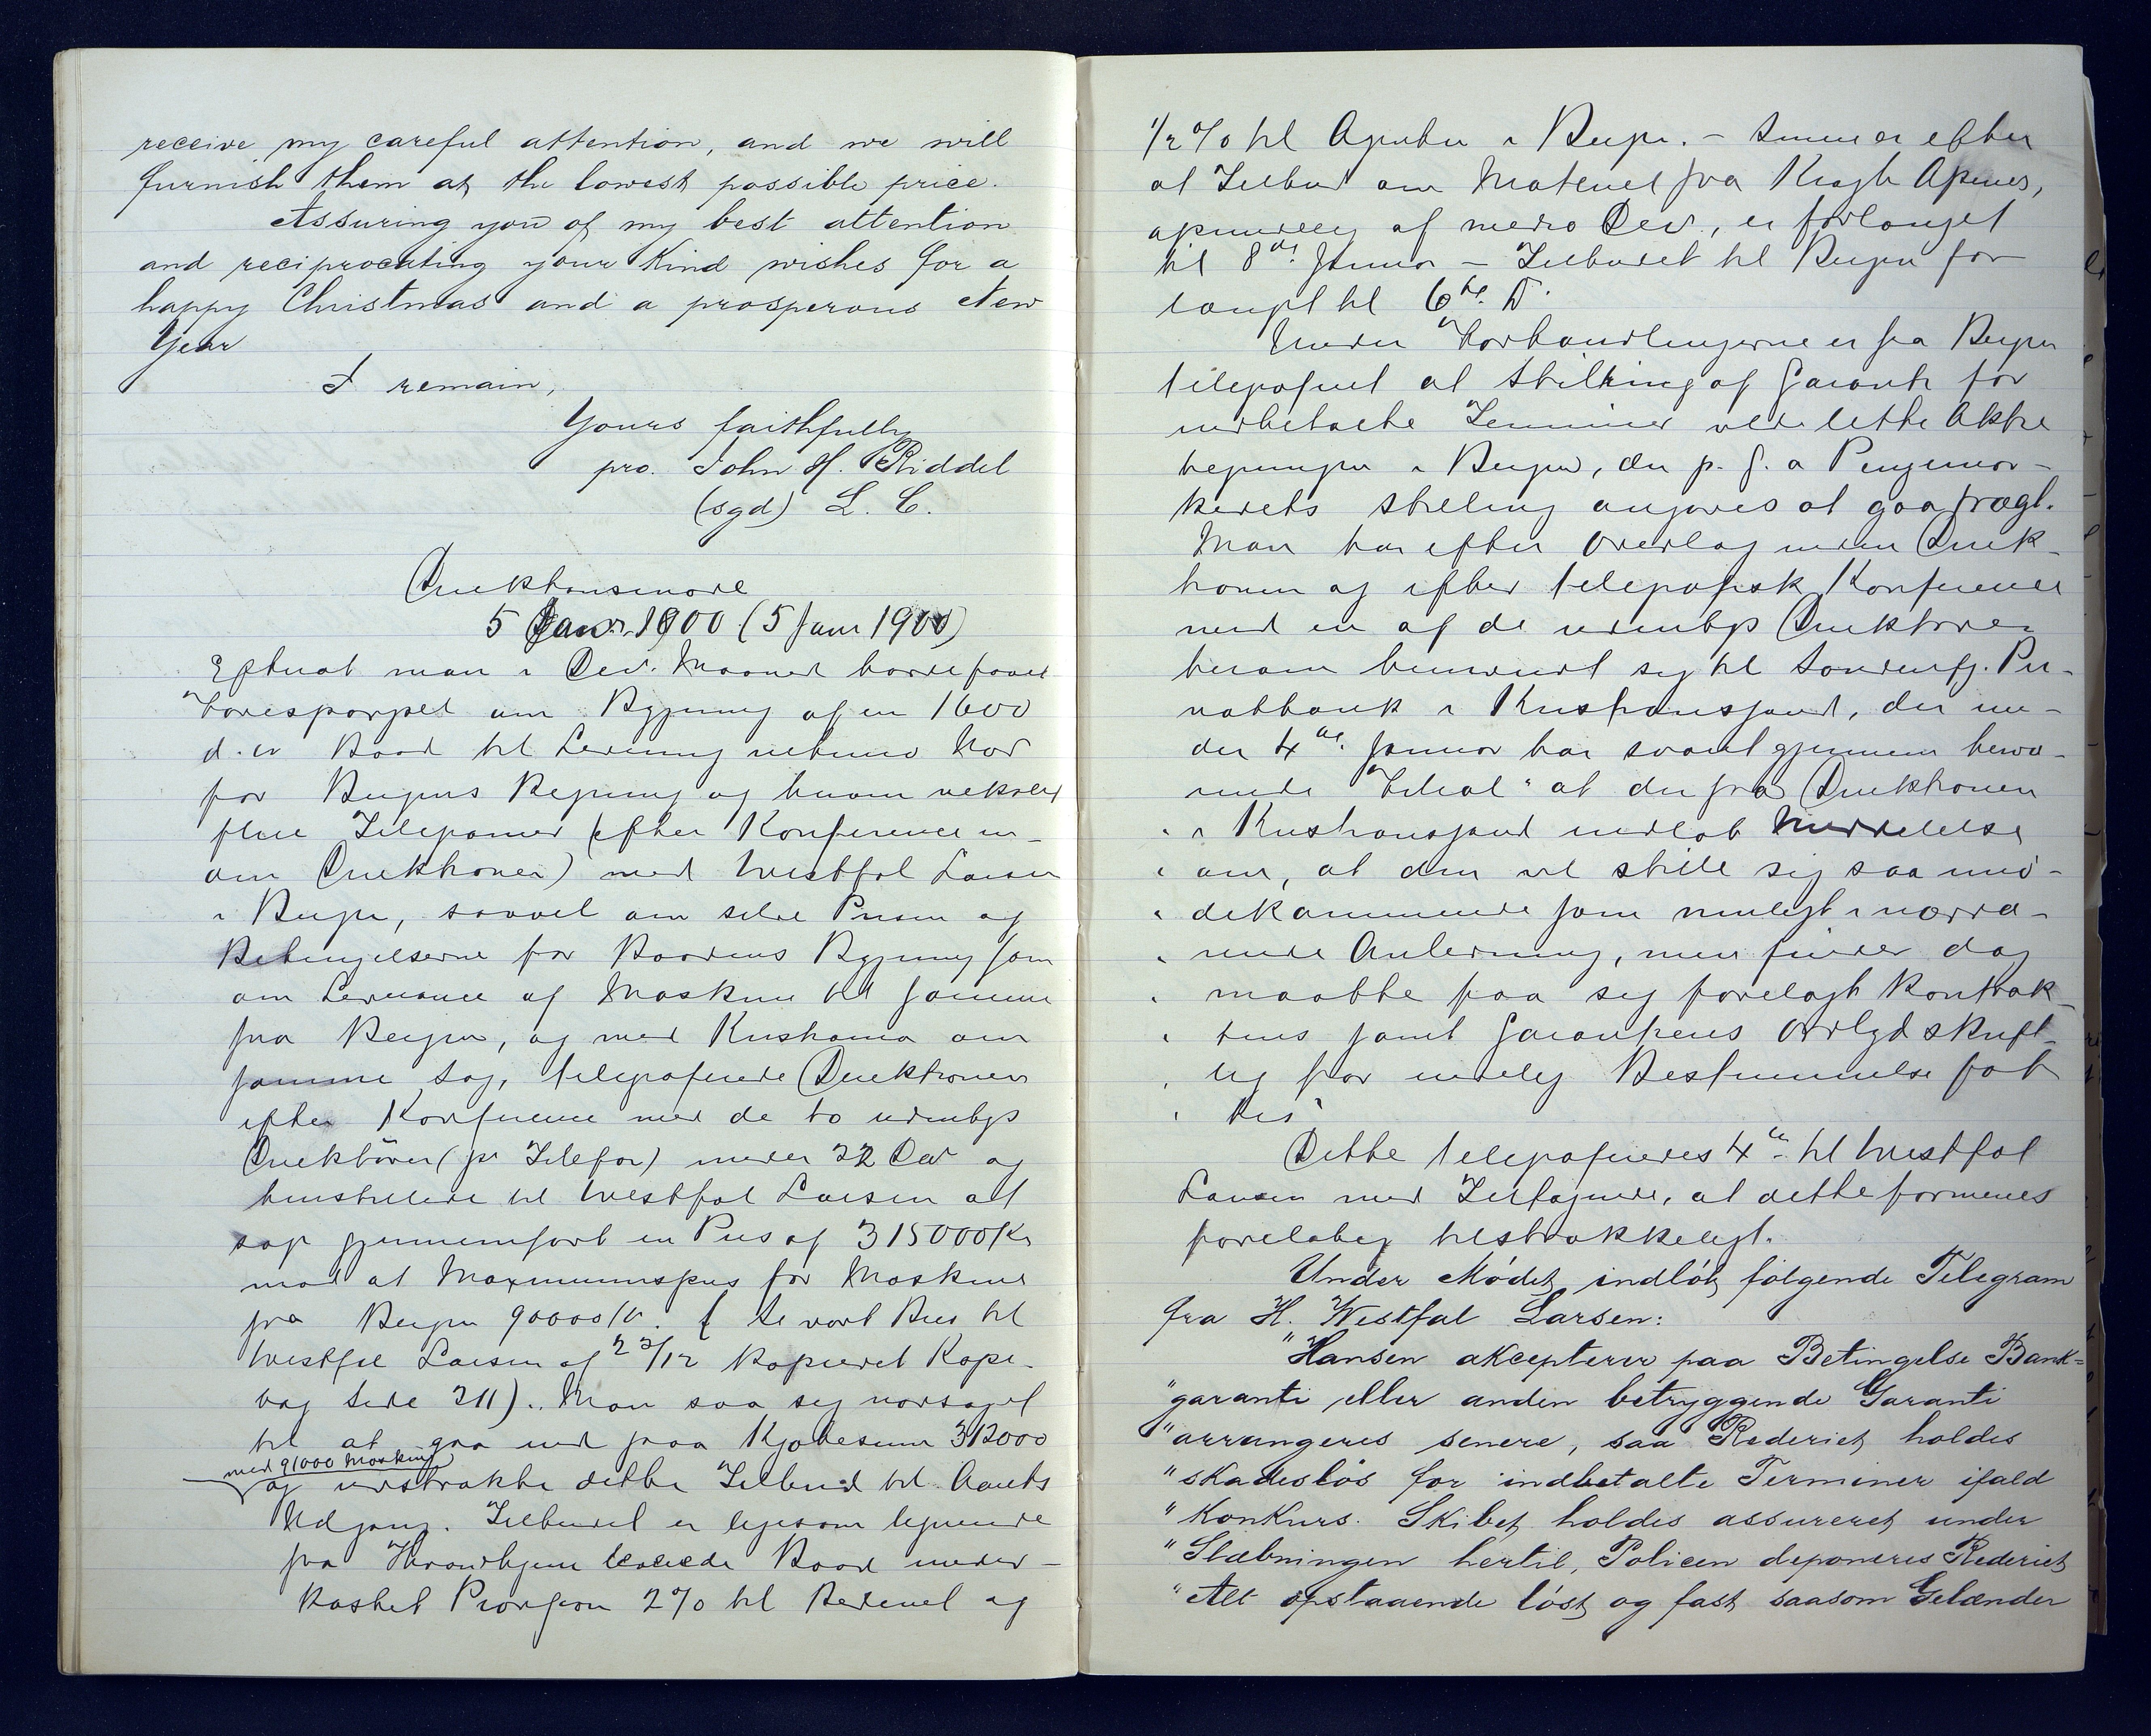 receive my careful attention, and we will
furnish them at the lowest possible price.
Assuring you of my best attention
and reciprocating your kind wishes for a
happy Christmas and a prosperous New
Year
I remain,
Yours faithfully
pro. John H. Riddel
(sgd) L. C.
Direktionsmøde
5 Janr. 1900 (5 Janr 1900)
Efterat man i Decr. Maaned havde faaet
Forespørgsel om Bygning af en 1600
d.w. Baad til Levering
for Bergens Regning og herom vekslet
flere Telegramer (efter Konference in-
om Direktionen) med Westfal Larsen
i Bergen, saavel om selve Prisen og
Betingelserne for Baadens Bygning som
om Leverance af Maskine til samme
fra Bergen, og med Kristiania om
samme Sag, telegraferede Direktionen
efter Konference med de to udenbys
Direktører (pr Telefon) under 22 Decr og
henstillede til Westfal Larsen at
søge gjennemført en Pris af 315000 Kr
mod at Maximumspris for Maskine
fra Bergen 90000 Kr. ( Se vort Brev til
Westfal Larsen af 22/12 kopieret Kopi-
bog Side 211). Man saa sig nødsaget
til at gaa ind paa Kjøbesum 312000
med 91000 Maskine
og udstrakte dette Tilbud til Aarets
Udgang. Tilbudet er ligesom lignende
fra Throndhjem Baad under-
kastet Provision 2% til Rederiet og
1/2% til Agenten i Bergen. - Senere er efter
at Tilbud om Materiel fra Krogh Agenter,
af medio Decr., er forlænget
til 8de Januar - Tilbudet til Bergen for-
længet til 6te Do.
Under Forhandlingerne er fra Bergen
telegraferet at Stilling af Garanti for
indbetalte Terminer vilde lette Aktie
tegningen i Bergen, der p. g. a Pengemar-
kedets Stilling angives at gaa trægt.
Man har efter Overlæg inden Direk-
tionen og efter telegrafisk Konference
med en af de udenbys Direktører
herom henvendt sig til Søndenfj. Pri-
vatbank i Kristianssand, der un-
der 4de Januar har svaret gjennem herva-
rende Filial "at der fra Direktionen
" i Kristianssand indløb Meddelelse
" om, at den vil stille sig saa imø-
" dekommende som muligt i nærvæ-
" rende Anledning, men finder dog
" maatte faa sig forelagt Kontrak-
" tens samt Garantiens Ordlyd skrift-
" lig før endelig Bestemmelse fat-
" tes"
Dette telegraferedes 4de til Westfal
Larsen med Tilføjende, at dette formenes
foreløbig tilstrækkeligt.
Under Mødet indløb følgende Telegram
fra H. Westfal Larsen:
"Hansen akcepterer paa Betingelse Bank=
"garanti eller anden betryggende Garanti
"arrangeres senere, saa Rederiet holdes
"skadesløs for indbetalte Terminer ifald
"Konkurs. Skibet holdes assureret under
"Slæbningen hertil, Policen deponeres Rederiet
"Alt opstaaende løst og fast saasom Gelænder